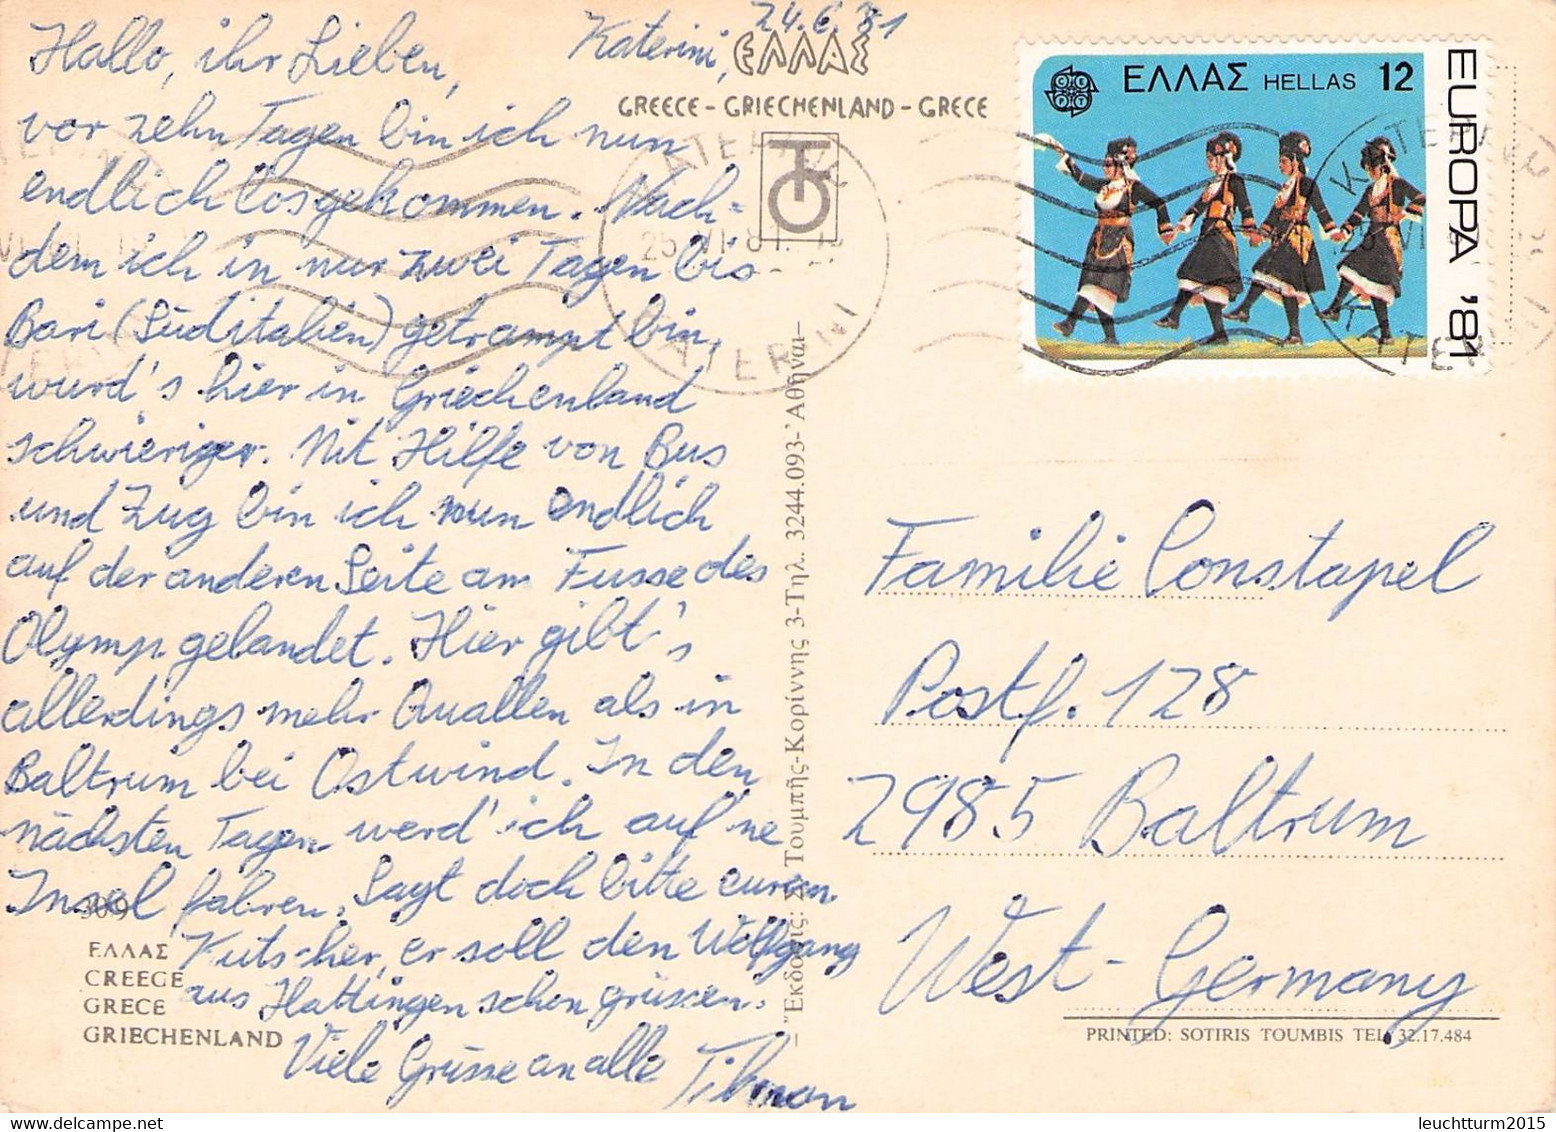 Katerini, 24.6.81
Hallo, ihr Lieben,
vor zehn Tagen bin ich nun
endlich losgekommen. Nach-
dem ich in nur zwei Tagen bis
Bari (Süditalien) getrampt bin,
wurd's hier in Griechenland
schwieriger. Mit Hilfe von Bus
und Zug bin ich nun endlich
auf der anderen Seite am Fusse des
Olymp gelandet. Hier gibt's
allerdings mehr Quallen als in
Baltrum bei Ostwind. In den
nächsten Tagen werd' ich auf 'ne
Insel fahren. Sagt doch bitte eurem
Kutscher, er soll den Wolfgang
aus Hattingen schön grüssen.
Viele Grüsse an alle Tilman
309
ΕΛΛΑΣ
CREEGE
GRECE
GRIECHENLAND
ΕΛΛΑΣ
GREECE - GRIECHENLAND - GRECE
KATERINI
25 VI 81
KATERINI
Ἐκδόσεις: Σ. Τουμπῆς-Κορίννης 3-Τηλ. 3244.093-Ἀθῆναι
ΕΛΛΑΣ HELLAS 12
EUROPA '81
CEPT
KATERINI
KATERINI
Familie Constapel
Postf. 128
2985 Baltrum
West-Germany
PRINTED: SOTIRIS TOUMBIS TEL. 32.17.484
leuchtturm2015